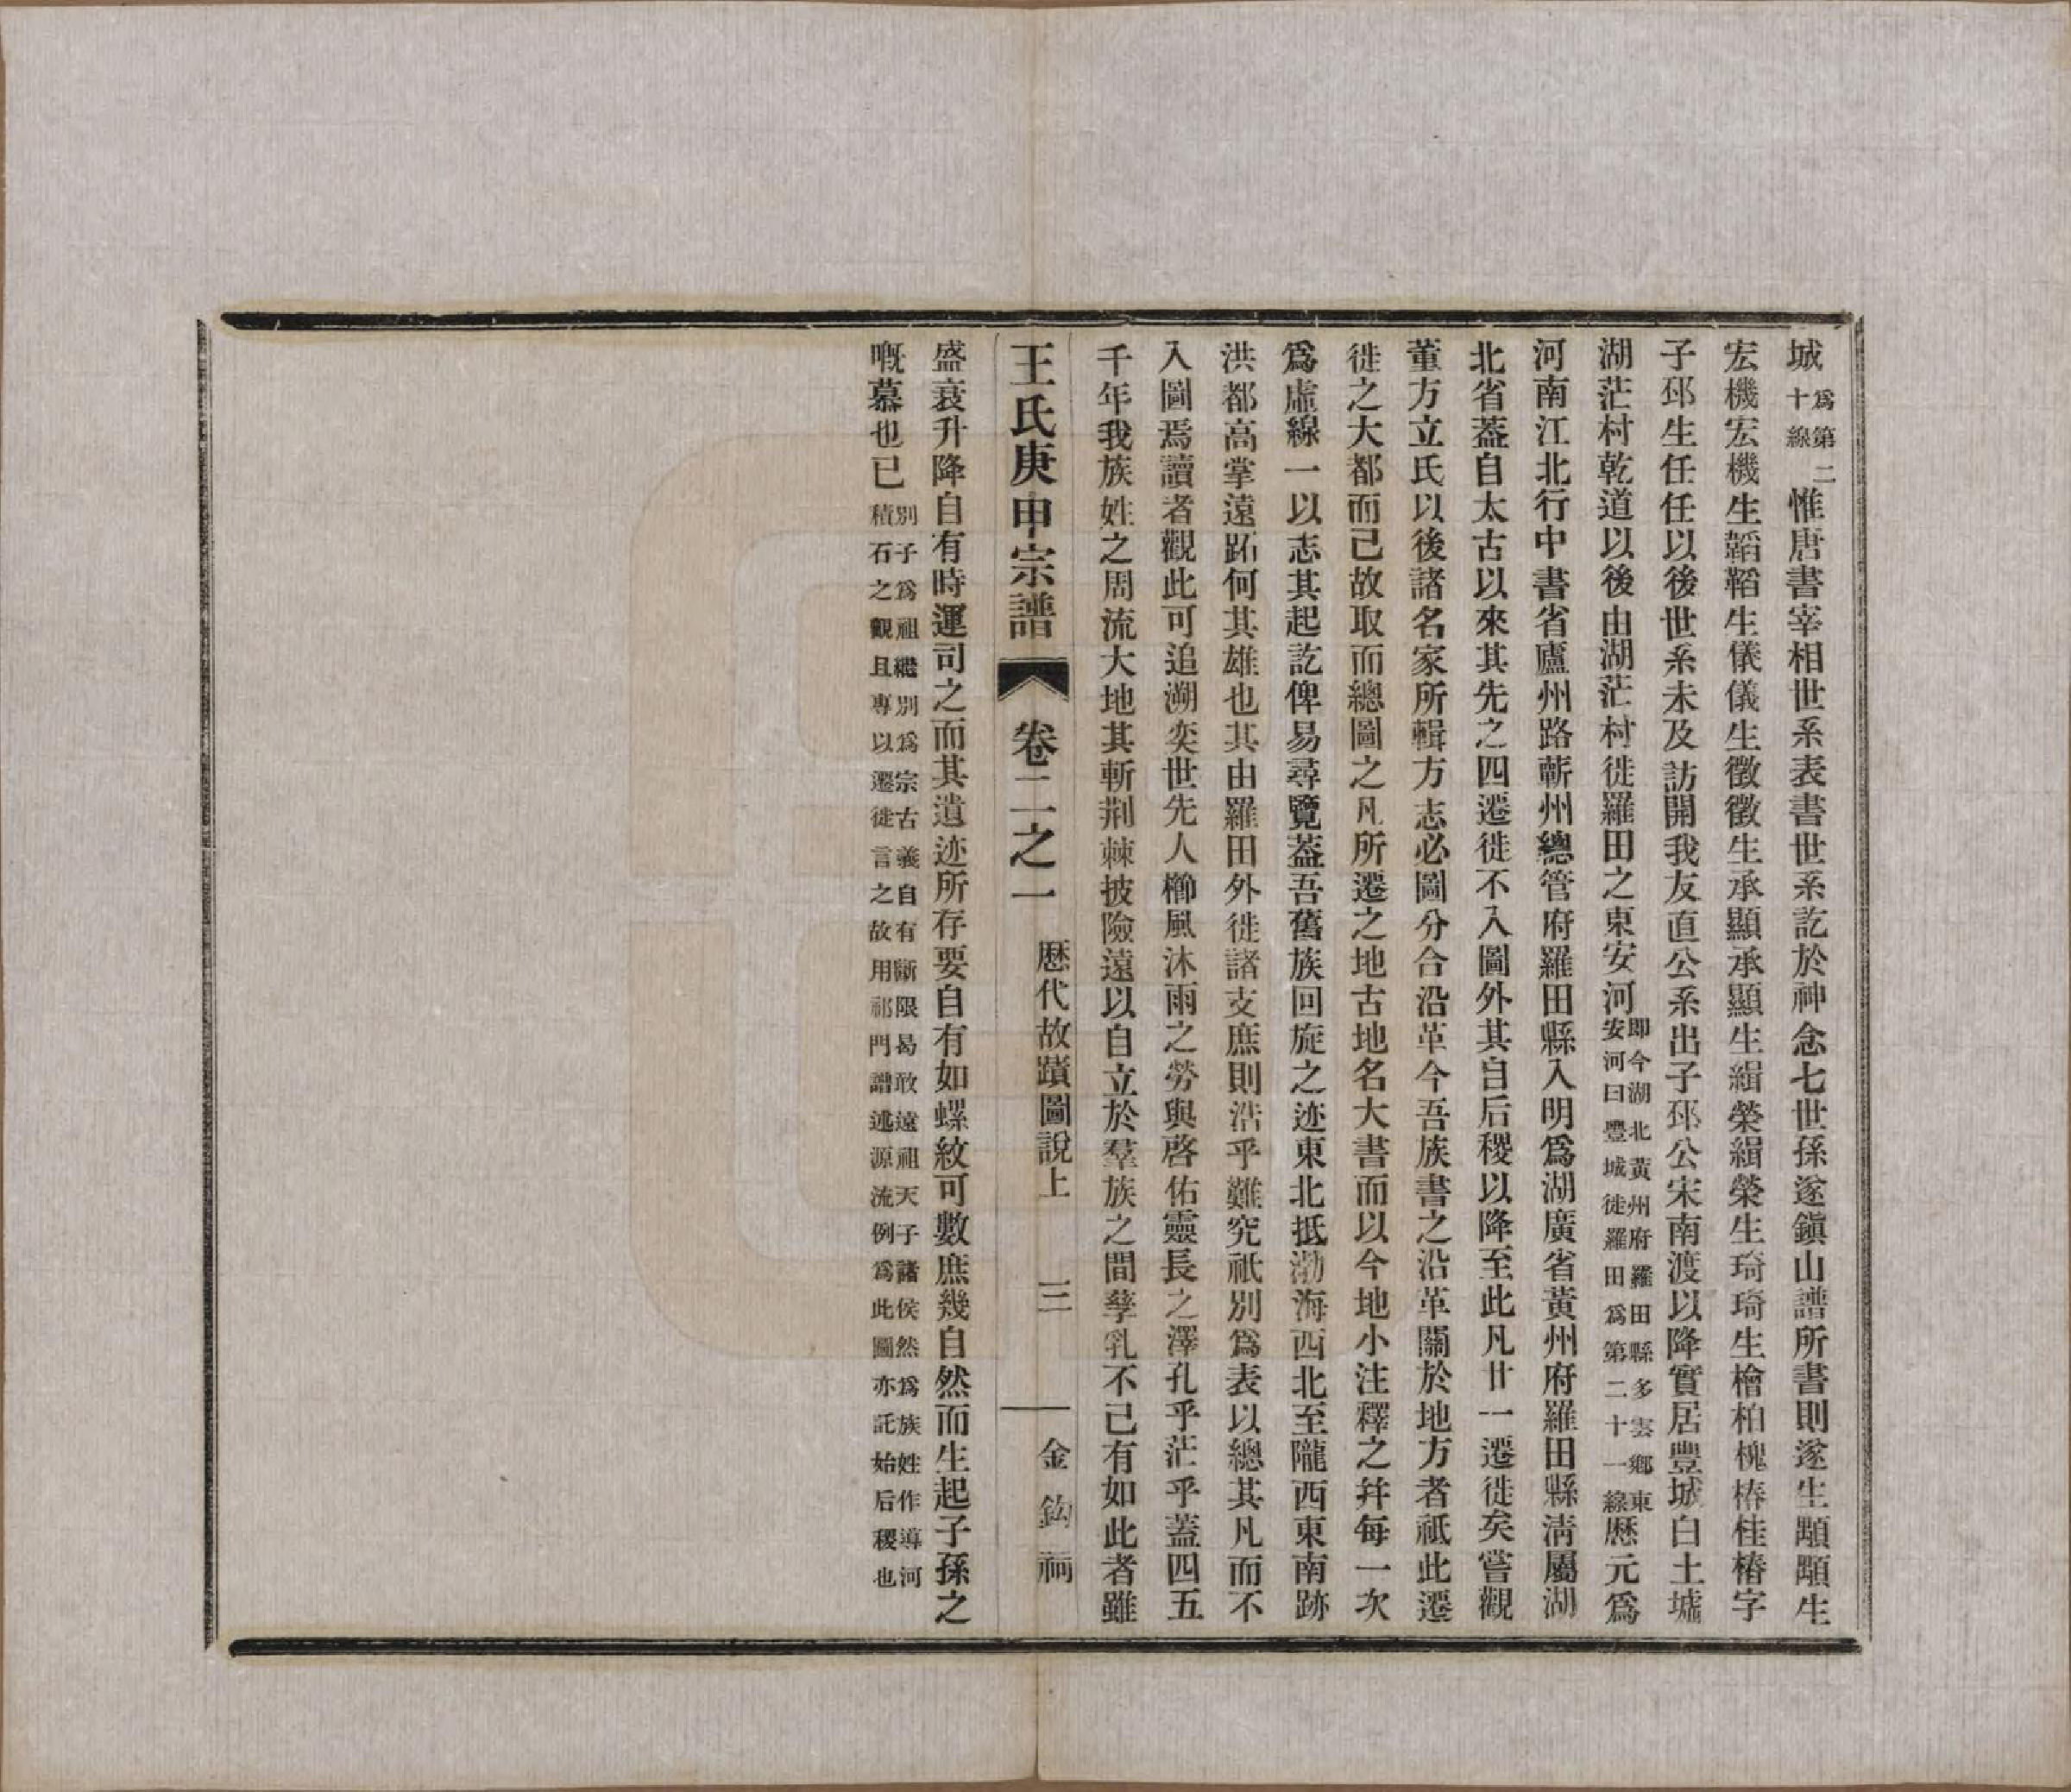 城為第二十線惟唐書宰相世系表書世系訖於神念七世孫遂鎭山譜所書則遂生顒顒生
宏機宏機生韜韜生儀儀生徵徵生承顯承顯生緝榮緝榮生琦琦生檜柏槐椿桂椿字
子邳生任任以後世系未及訪開我友直公系出子邳公宋南渡以降實居豐城白土墟
湖茫村乾道以後由湖茫村徙羅田之東安河即今湖北黃州府羅田縣多雲鄉東安河曰豐城徙羅田爲第二十一線歷元爲
河南江北行中書省廬州路蘄州總管府羅田縣入明爲湖廣省黃州府羅田縣淸屬湖
北省葢自太古以來其先之四遷徙不入圖外其自后稷以降至此凡廿一遷徙矣嘗觀
董方立氏以後諸名家所輯方志必圖分合沿革今吾族書之沿革關於地方者祇此遷
徙之大都而已故取而總圖之凡所遷之地古地名大書而以今地小注釋之幷每一次
爲虛線一以志其起訖俾易尋覽葢吾舊族回旋之迹東北抵渤海西北至隴西東南跡
洪都高掌遠跖何其雄也其由羅田外徙諸支庶則浩乎難究祇別爲表以總其凡而不
入圖焉讀者觀此可追溯奕世先人櫛風沐雨之勞與啓佑靈長之澤孔乎茫乎蓋四五
千年我族姓之周流大地其斬荆棘披險遠以自立於羣族之間孳乳不已有如此者雖
王氏庚申宗譜 卷二之一 歷代故蹟圖說上 三 金鈎祠
盛衰升降自有時運司之而其遺迹所存要自有如螺紋可數庶幾自然而生起子孫之
嘅慕也已別子爲祖繼別爲宗古義自有斷限曷敢遠祖天子諸侯然爲族姓作導河積石之觀且專以遷徙言之故用祁門譜述源流例爲此圖亦託始后稷也